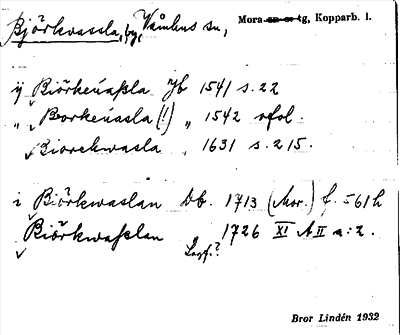 Björkvassla, by, Våmhus sn, Mora tg, Kopparb. l.
ÿ Biörkeúaßla Jb 1541 s. 22
„ Borkeúasla (!) „ 1542 rfol.
Biorckwasla „ 1631 s. 215.
i Biörkwaslan Db. 1713 (Mor.) f. 561 h
Biörkwaßlan 1726 XI A II a:2.
Lagf.?
Bror Lindén 1932